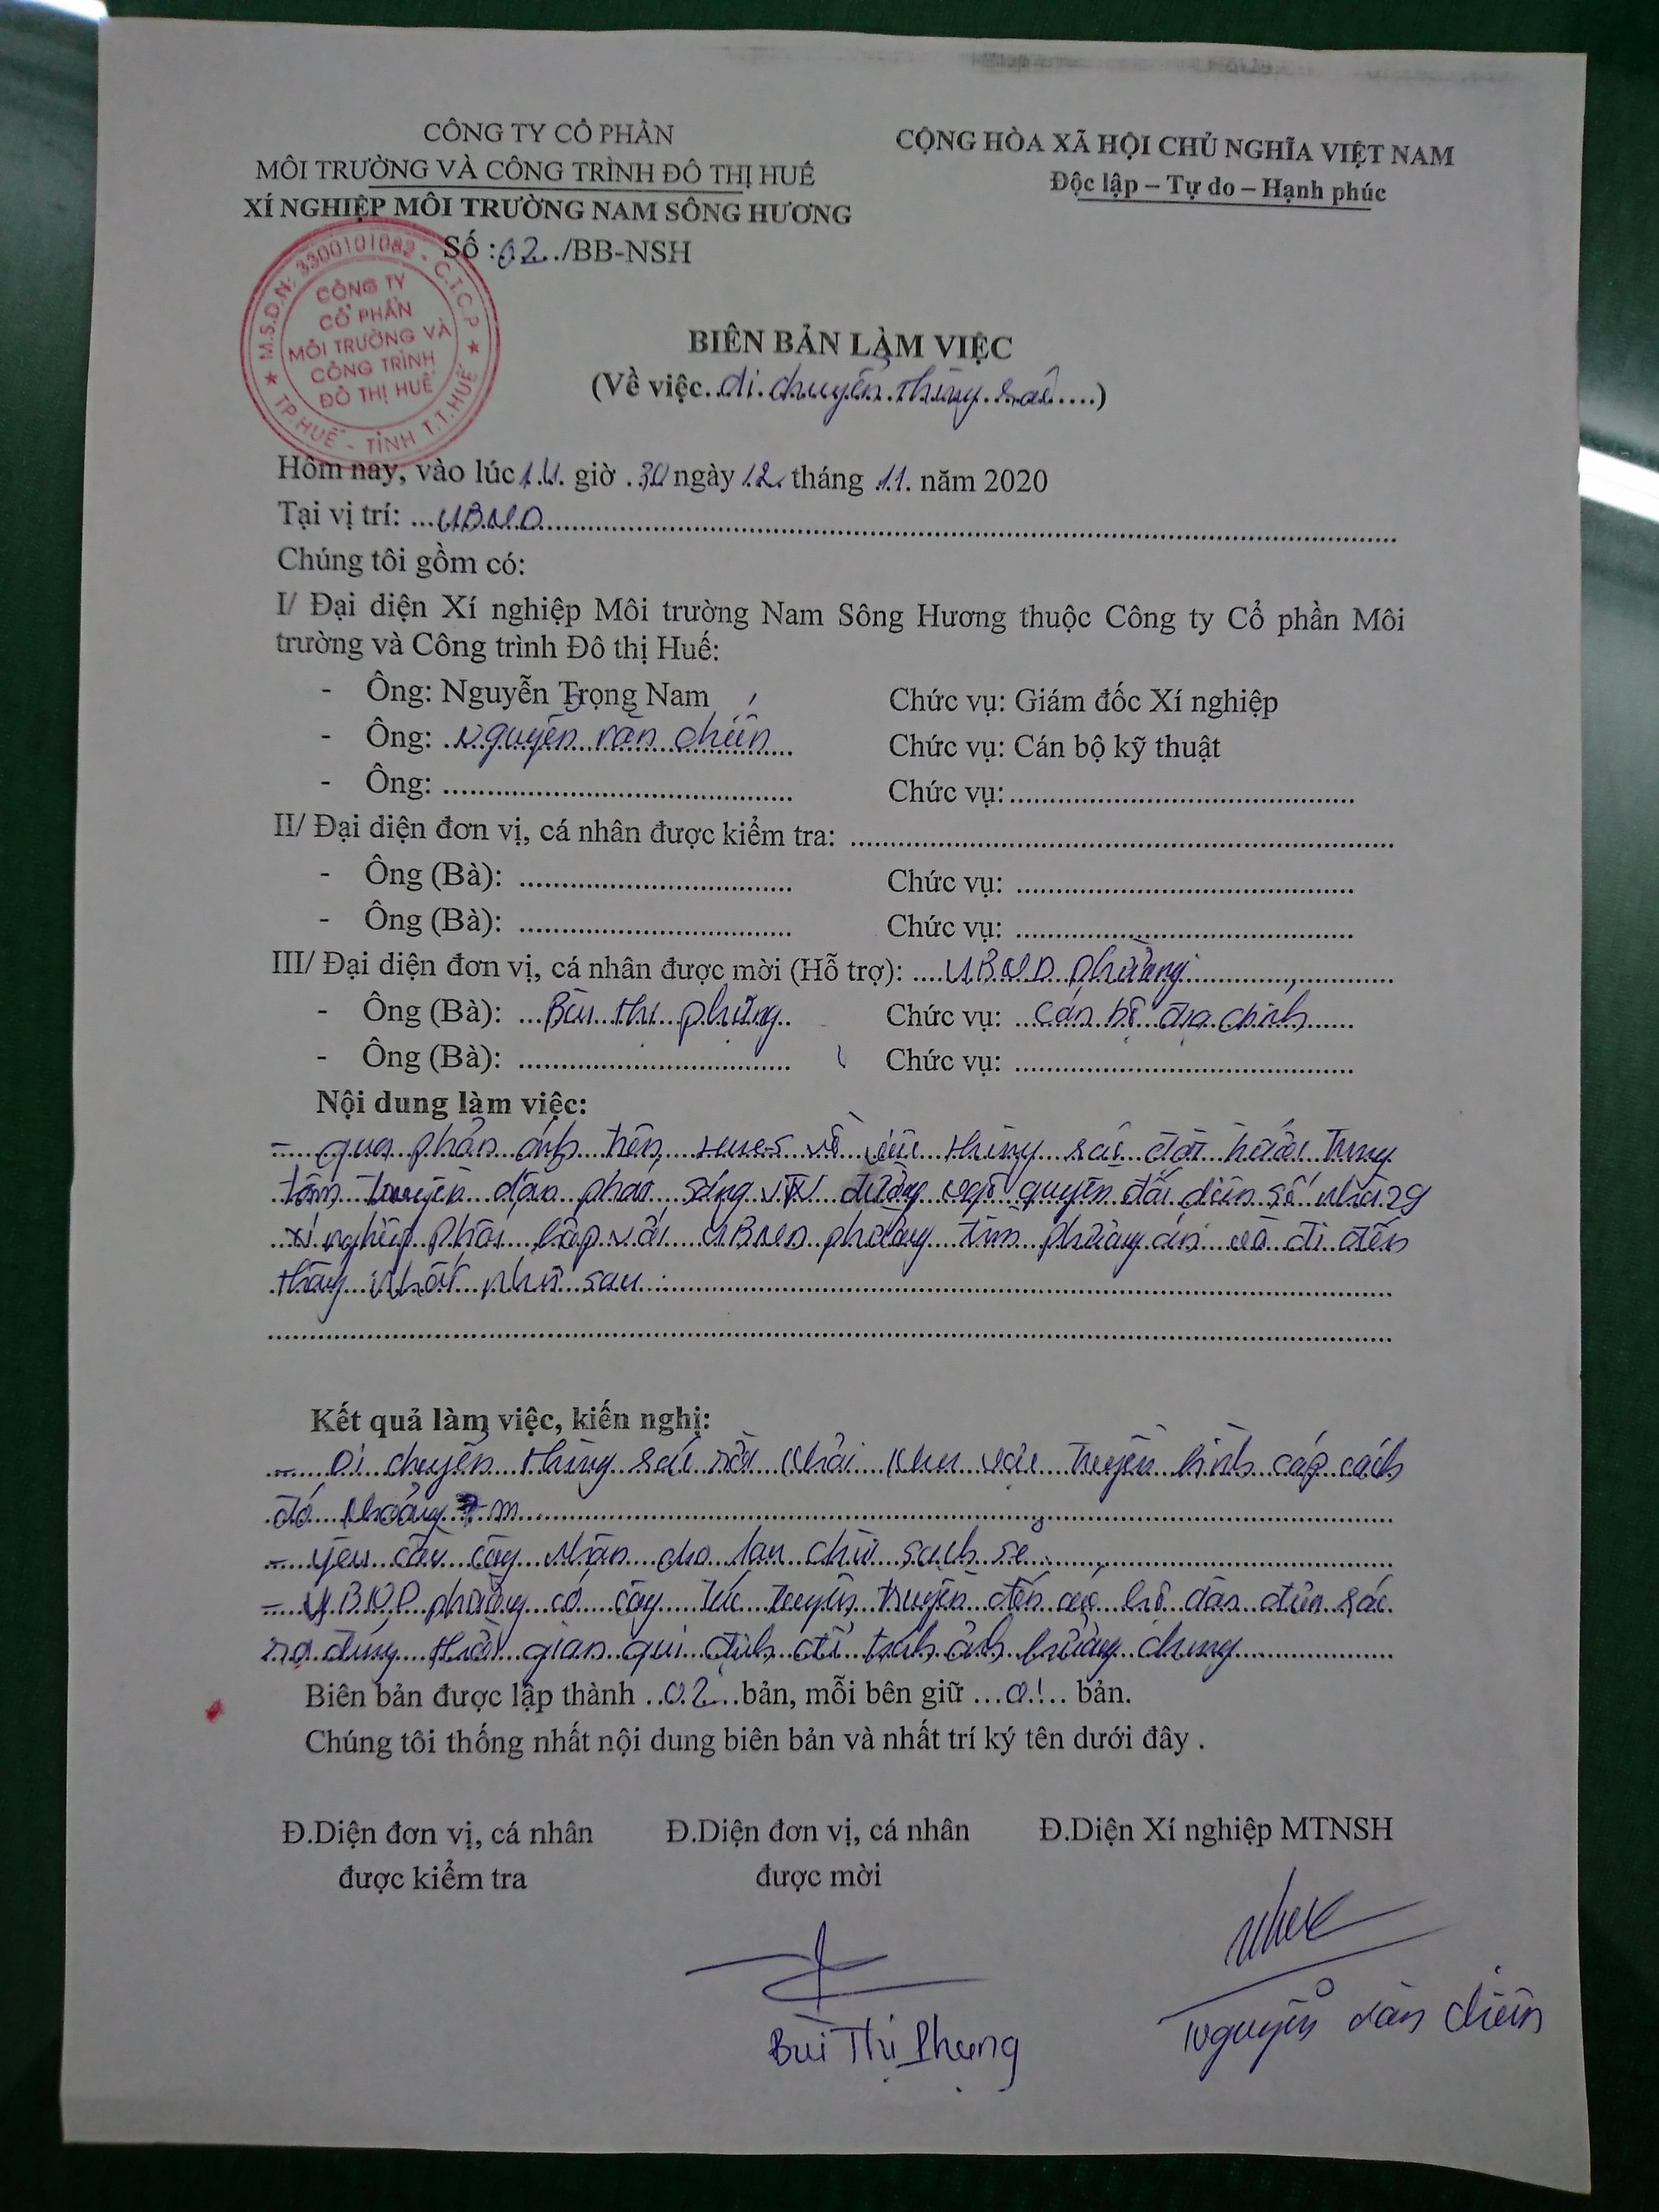 CÔNG TY CỔ PHẦN
MÔI TRƯỜNG VÀ CÔNG TRÌNH ĐÔ THỊ HUẾ
XÍ NGHIỆP MÔI TRƯỜNG NAM SÔNG HƯƠNG
Số : 02 /BB-NSH
CỘNG HÒA XÃ HỘI CHỦ NGHĨA VIỆT NAM
Độc lập – Tự do – Hạnh phúc
M.S.D.N: 3300101082 - C.T.C.P
CÔNG TY
CỔ PHẦN
MÔI TRƯỜNG VÀ
CÔNG TRÌNH
ĐÔ THỊ HUẾ
TP.HUẾ - TỈNH T.T.HUẾ
BIÊN BẢN LÀM VIỆC
(Về việc di chuyển thùng rác)
Hôm nay, vào lúc 14 giờ 30 ngày 12 tháng 11 năm 2020
Tại vị trí: UBND
Chúng tôi gồm có:
I/ Đại diện Xí nghiệp Môi trường Nam Sông Hương thuộc Công ty Cổ phần Môi
trường và Công trình Đô thị Huế:
- Ông: Nguyễn Trọng Nam Chức vụ: Giám đốc Xí nghiệp
- Ông: Nguyễn văn Chức vụ: Cán bộ kỹ thuật
- Ông: Chức vụ:
II/ Đại diện đơn vị, cá nhân được kiểm tra:
- Ông (Bà): Chức vụ:
- Ông (Bà): Chức vụ:
III/ Đại diện đơn vị, cá nhân được mời (Hỗ trợ): UBND phường
- Ông (Bà): Bùi thị phụng Chức vụ: cán bộ địa chính
- Ông (Bà): Chức vụ:
Nội dung làm việc:
- qua phản ánh trên Hues về việc thùng rác đặt trung
tâm truyền dẫn phát sóng đường Ngô quyền đối diện số nhà 29
xí nghiệp phối hợp với UBND phường tìm phương án và đi đến
thống nhất như sau :
Kết quả làm việc, kiến nghị:
- Di chuyển thùng rác rời khỏi khu vực truyền hình cáp cách
đó khoảng m
- yêu cầu công nhân cho lau chùi sạch sẽ
- UBND phường có công tác tuyên truyền đến các hộ dân đưa rác
ra đúng thời gian qui định để tránh ảnh hưởng chung
Biên bản được lập thành 02 bản, mỗi bên giữ 01 bản.
Chúng tôi thống nhất nội dung biên bản và nhất trí ký tên dưới đây .
Đ.Diện đơn vị, cá nhân
được kiểm tra
Đ.Diện đơn vị, cá nhân
được mời
Đ.Diện Xí nghiệp MTNSH
Bùi Thị Phụng
Nguyễn văn